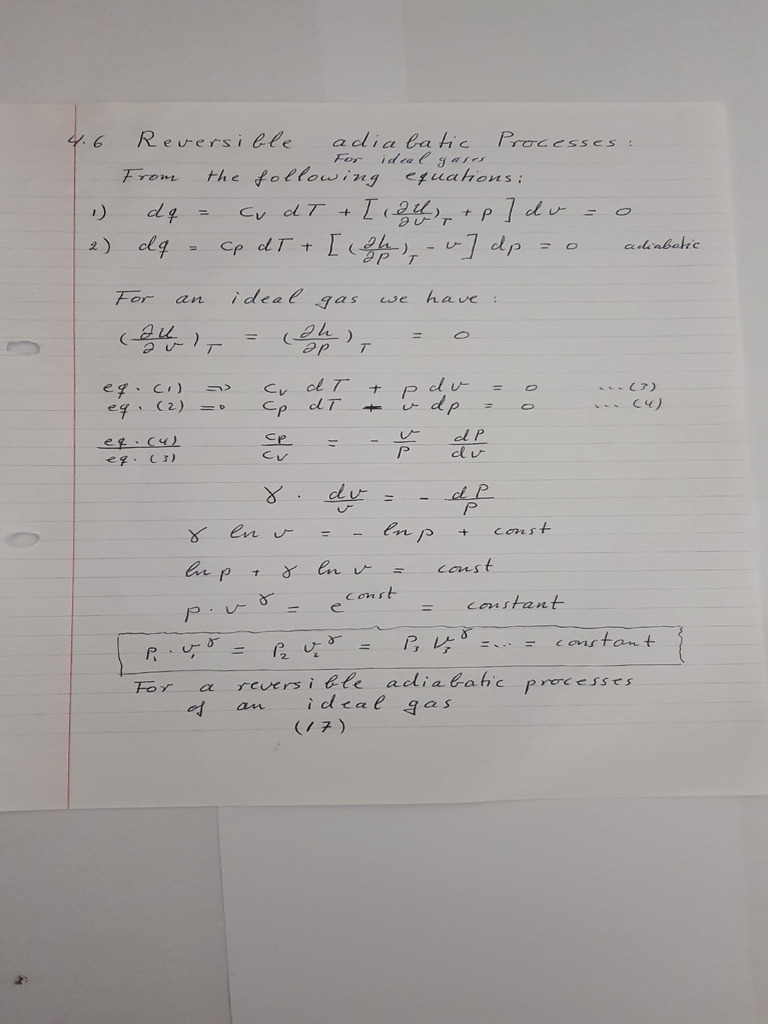 4.6 Reversible adiabatic Processes:
For ideal gases
From the following equations:
1) dq = cv dT + [(∂u/∂v)T + p] dv = 0
2) dq = cp dT + [(∂h/∂p)T - v] dp = 0 adiabatic
For an ideal gas we have:
(∂u/∂v)T = (∂h/∂p)T = 0
eq. (1) => cv dT + p dv = 0 ...(3)
eq. (2) => cp dT - v dp = 0 ... (4)
eq. (4)/eq. (3) cp/cv = - v/p dP/dv
γ . dv/v = - dP/P
γ ln v = - ln p + const
ln p + γ ln v = const
p . v^γ = e^const = constant
P1 . v1^γ = P2 v2^γ = P3 V3^γ =... = constant
For a reversible adiabatic processes
of an ideal gas
(17)